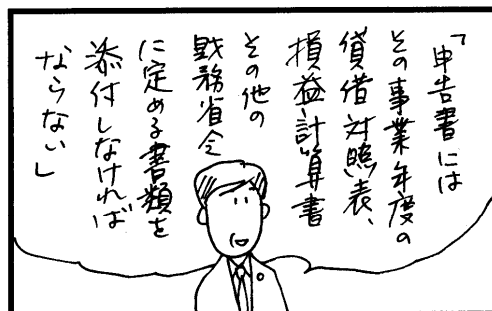 「申告書には
その事業年度の
貸借対照表、
損益計算書
その他の
財務省令
に定める書類を
添付しなければ
ならない」